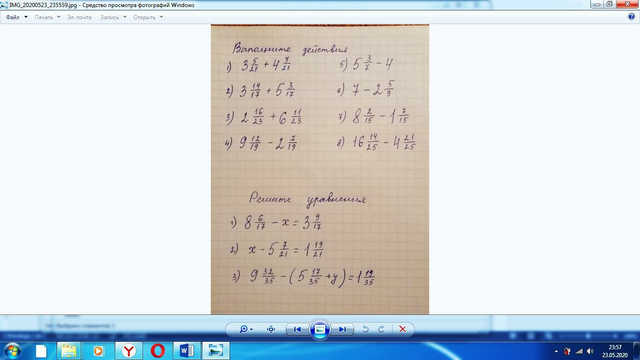 IMG_20200523_235559.jpg - Средство просмотра фотографий Windows
Файл Печать Эл. почта Запись Открыть
Выполните действия.
1) 3 5/21 + 4 4/21
5) 5 3/7 - 4
2) 3 14/17 + 5 3/17
6) 7 - 2 5/9
3) 2 16/23 + 6 11/23
7) 8 2/15 - 1 7/15
4) 9 12/19 - 2 7/19
8) 16 14/25 - 4 21/25
Решите уравнения
1) 8 6/17 - x = 3 9/17
2) x - 5 7/21 = 1 19/21
3) 9 32/35 - (5 17/35 + y) = 1 19/35
23:57
23.05.2020